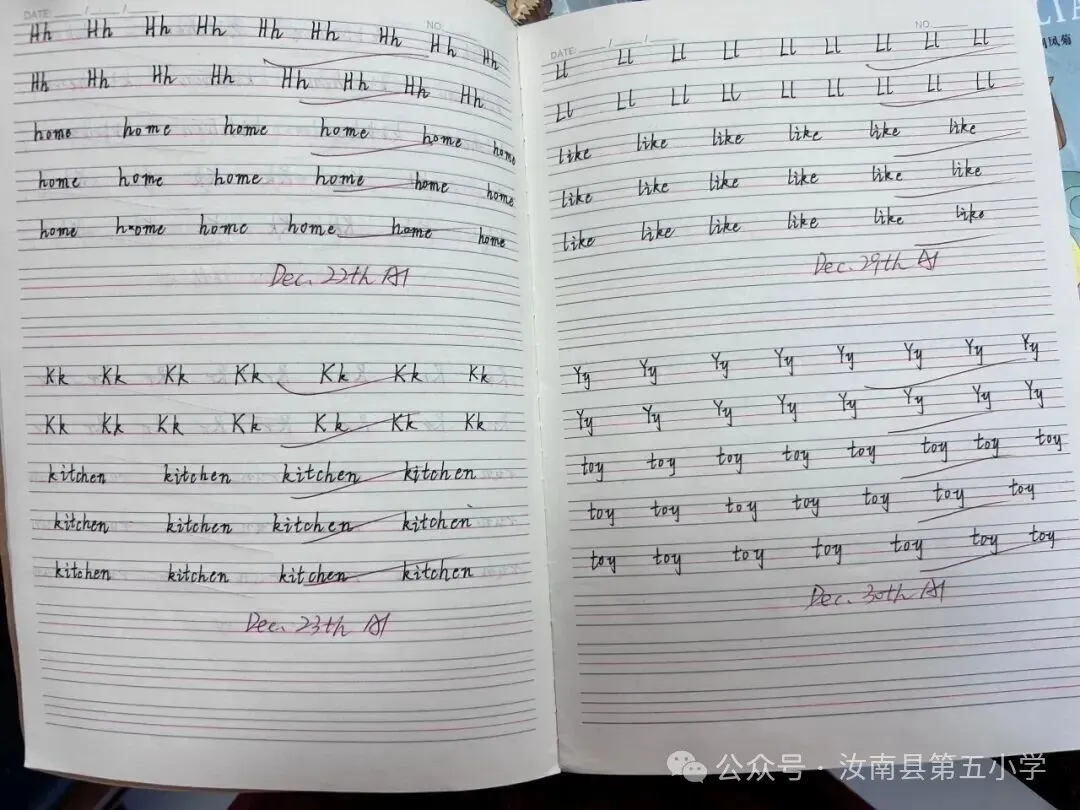 DATE: / /
NO.
Hh Hh Hh Hh Hh Hh Hh Hh Hh
Hh Hh Hh Hh Hh Hh Hh Hh
home home home home home home
home home home home home home
home home home home home home
Dec. 22th A1
Kk Kk Kk Kk Kk Kk Kk
Kk Kk Kk Kk Kk Kk Kk
kitchen kitchen kitchen kitchen
kitchen kitchen kitchen kitchen
kitchen kitchen kitchen kitchen
Dec. 23th A1
DATE: / /
NO.
Ll Ll Ll Ll Ll Ll Ll Ll Ll
Ll Ll Ll Ll Ll Ll Ll Ll Ll
like like like like like like
like like like like like like
like like like like like like
Dec. 29th A1
Yy Yy Yy Yy Yy Yy Yy Yy
Yy Yy Yy Yy Yy Yy Yy Yy
toy toy toy toy toy toy toy toy
toy toy toy toy toy toy toy
toy toy toy toy toy toy toy
Dec. 30th A1
公众号 · 汝南县第五小学